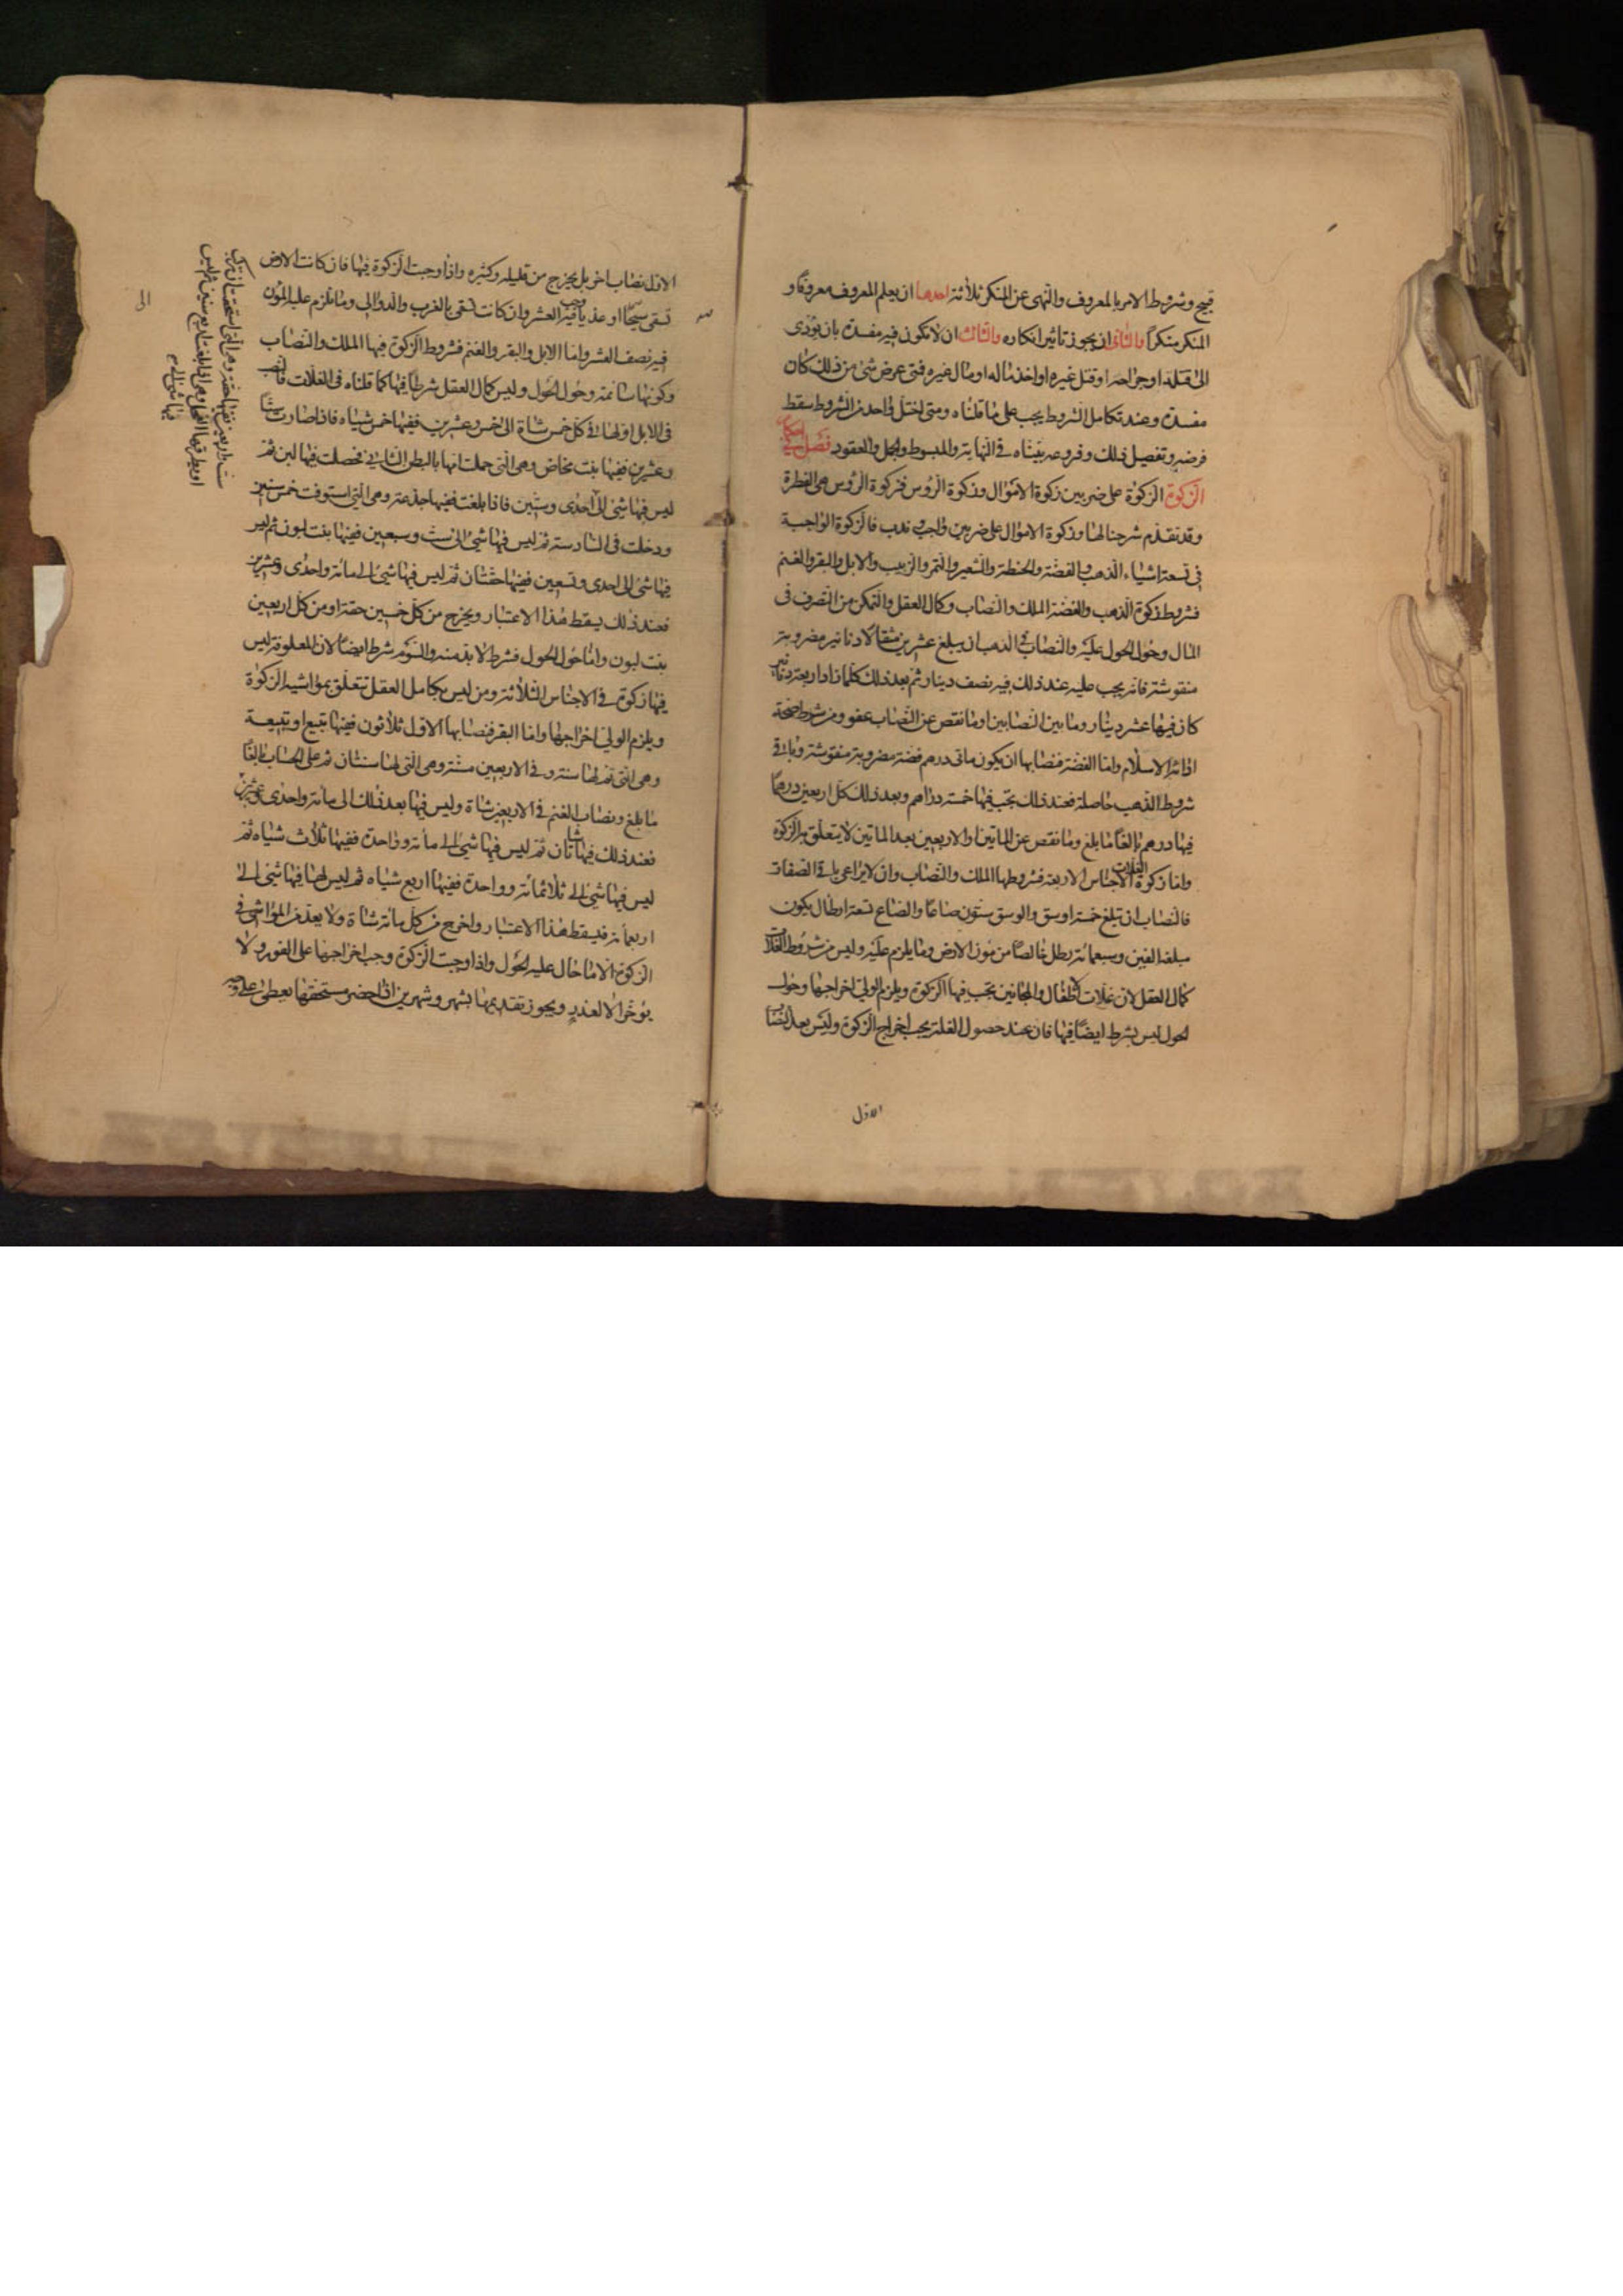 قبيح وشروط الامر بالمعروف والنهى عن المنكر ثلاثة احدها ان يعلم المعروف معروفا و
المنكر منكرا والثانى ان يجوز تاثير انكاره والثالث ان لا يكون فيه مفسدة بان يؤدى
الى قتله او جراحه او قتل غيره او اخذ ماله او مال غيره فمتى عرض شئ من ذلك كان
مفسدة وعند تكامل الشروط يجب على ما قلناه ومتى اختل واحد من الشروط سقط
فرضه وتفصيل ذلك وفروعه بيناه فى النهاية والمبسوط والجمل والعقود فصل فى احكام
الزكوة الزكوة على ضربين زكوة الاموال وزكوة الرؤس فزكوة الرؤس هى الفطرة
وقد تقدم شرحنا لها وزكوة الاموال على ضربين واجب وندب فالزكوة الواجبة
فى تسعة اشياء الذهب والفضة والحنطة والشعير والتمر والزبيب والابل والبقر والغنم
فشروط زكوة الذهب والفضة الملك والنصاب وكمال العقل والتمكن من التصرف فى
المال وحؤل الحول عليه والنصاب فى الذهب ان يبلغ عشرين مثقالا دنانير مضروبة
منقوشة فانه يجب عليه عند ذلك فيه نصف دينار ثم بعد ذلك كلما زاد اربعة دنانير
كان فيها عشر دينار وما بين النصابين وما نقص عن النصاب عفو ومن شرط صحة
ادائه الاسلام واما الفضة فنصابها ان يكون مائى درهم فضة مضروبة منقوشة وباقى
شروط الذهب حاصلة فعند ذلك تجب فيها خمسة دراهم وبعد ذلك كل اربعين درهما
فيها درهم بالغا ما بلغ وما نقص عن الماتين او الاربعين بعد الماتين لا يتعلق به الزكوة
واما زكوة الغلات الاجناس الاربعة فشروطها الملك والنصاب وان لا يراعى باقى الصفات
فالنصاب ان تبلغ خمسة اوسق والوسق ستون صاعا والصاع تسعة ارطال يكون
مبلغه الفين وسبعمائة رطل خالصا من مؤن الارض وما يلزم عليه وليس من شروط الغلات
كمال العقل لان غلات الاطفال والمجانين تجب فيها الزكوة ويلزم الولى اخراجها وحؤل
الحول ليس بشرط ايضا فيها فان عند حصول الغلة يجب اخراج الزكوة وليس بعد النصاب
الاول
الاول نصاب اخر بل يخرج من قليله وكثيره واذا وجبت الزكوة فيها فان كانت الارض
تسقى سيحا او عذيا وجب فيه العشر وان كانت تسقى بالغرب والدوالى وما يلزم عليه المؤن
فيه نصف العشر واما الابل والبقر والغنم فشروط الزكوة فيها الملك والنصاب
وكونها سائمة وحؤل الحول وليس كمال العقل شرطا فيها كما قلناه فى الغلات فالنصب
فى الابل اولها فى كل خمس شاة الى خمس وعشرين ففيها خمس شياه فاذا صارت ستا
وعشرين ففيها بنت مخاض وهى التى حملت امها بالبطن الثانى فحصلت فيها لبن ثم
ليس فيها شئ الى احدى وستين فاذا بلغت ففيها جذعة وهى التى استوفت خمس سنين
ودخلت فى السادسة ثم ليس فيها شئ الى ست وسبعين ففيها بنت لبون ثم ليس
فيها شئ الى احدى وتسعين ففيها حقتان ثم ليس فيها شئ الى مائة واحدى وعشرين
فعند ذلك يسقط هذا الاعتبار ويخرج من كل خمسين حقة او من كل اربعين
بنت لبون واما حؤل الحول فشرط لا بد منه والسوم شرط ايضا لان المعلوفة ليس
فيها زكوة فى الاجناس الثلاثة ومن ليس بكامل العقل تتعلق بمواشيه الزكوة
ويلزم الولى اخراجها واما البقر فنصابها الاول ثلاثون ففيها تبيع او تبيعة
وهى التى تم لها سنة وفى الاربعين مسنة وهى التى لها سنتان ثم على الحساب بالغا
ما بلغ ونصاب الغنم فى الاربعين شاة وليس فيها بعد ذلك الى مائة واحدى وعشرين
فعند ذلك فيها شاتان ثم ليس فيها شئ الى مائة وواحدة ففيها ثلاث شياه ثم
ليس فيها شئ الى ثلاثمائة وواحدة ففيها اربع شياه ثم ليس لها فيها شئ الى
اربعمائة فيسقط هذا الاعتبار واخرج من كل مائة شاة ولا يعد فى المواشى فى
الزكوة الا ما حال عليه الحول واذا وجبت الزكوة وجب اخراجها على الفور ولا
يؤخر الا لعذر ويجوز تقديمها بشهر وشهرين اذا حضر مستحقها يعطى على وجه
الى